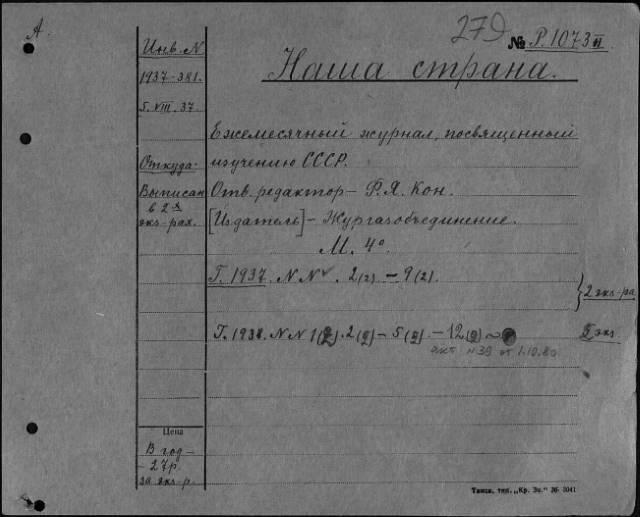 А.
279
№ Р.1073 II
Инв. N
Наша страна.
1937-381.
5.VIII.37.
Ежемесячный журнал, посвященный
Откуда-
изучению СССР.
Выписан
Отв. редактор – Ф. Я. Кон.
в 2-х
экз-рах.
[Издатель] – Жургазобъединение.
М. 4°
Г. 1937. N N 2(2) – 9(2).
2 экз-ра
Г. 1938. N N 1(2). 2(2) – 5(2). – 12(2)
экз.
акт N 39 от 1.10.80
Цена
В год –
– 27р.
за экз-р.
Тамбв. тип. „Кр. Зн.“ 3041